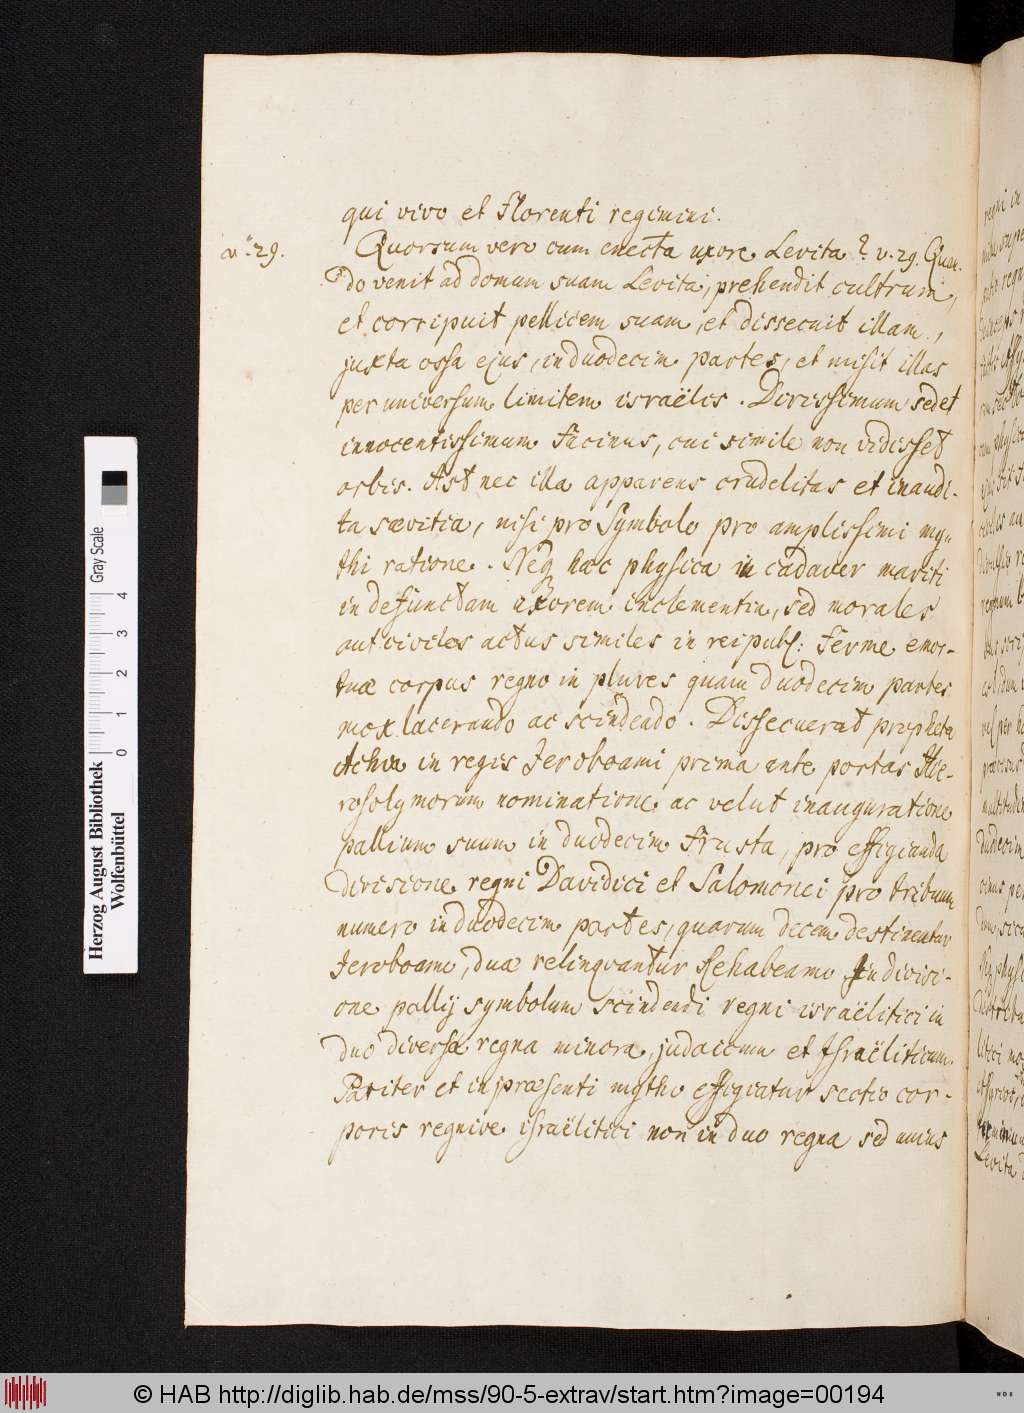 qui vivo et Florenti regimini.
v. 29.
Quorsum vero cum enecta uxore Levita? v. 29. Quan-
do venit ad domum suam Levita, prehendit cultrum,
et corripuit pellicem suam, et dissecuit illam,
juxta ossa ejus, in duodecim partes, et misit illas
per universum limitem israëlis. Dirissimum sed et
innocentissimum Facinus, cui simile non vidisset
orbis. Ast nec illa apparens crudelitas et inaudi-
ta sævitia, nisi pro Symbolo pro amplissimi my-
thi ratione. Neq hæc physica in cadaver mariti
in defunctam uxorem inclementia, sed morales
aut civiles actus similes in reipubl: Ferme emor-
tuæ corpus regno in plures quam duodecim partes
mox lacerando ac scindendo. Dissecuerat propheta
Achia in regis Jeroboami prima ante portas Hie-
rosolymorum nominatione ac velut inauguratione
pallium suum in duodecim Frusta, pro effigianda
divisione regni Davidici et Salomonei pro tribuum
numero in duodecim partes, quarum decem destinentur
Jeroboamo, duæ relinquantur Rehabeamo in divisi-
one pallij symbolum scindendi regni israëlitici in
duo diversa regna minora, judaicum et Israëliticum.
Pariter et in præsenti mytho effigiatur sectio cor-
poris regnive israëlitici non in duo regna sed unius
Herzog August Bibliothek
Wolfenbüttel
Gray Scale
0 1 2 3 4
© HAB http://diglib.hab.de/mss/90-5-extrav/start.htm?image=00194